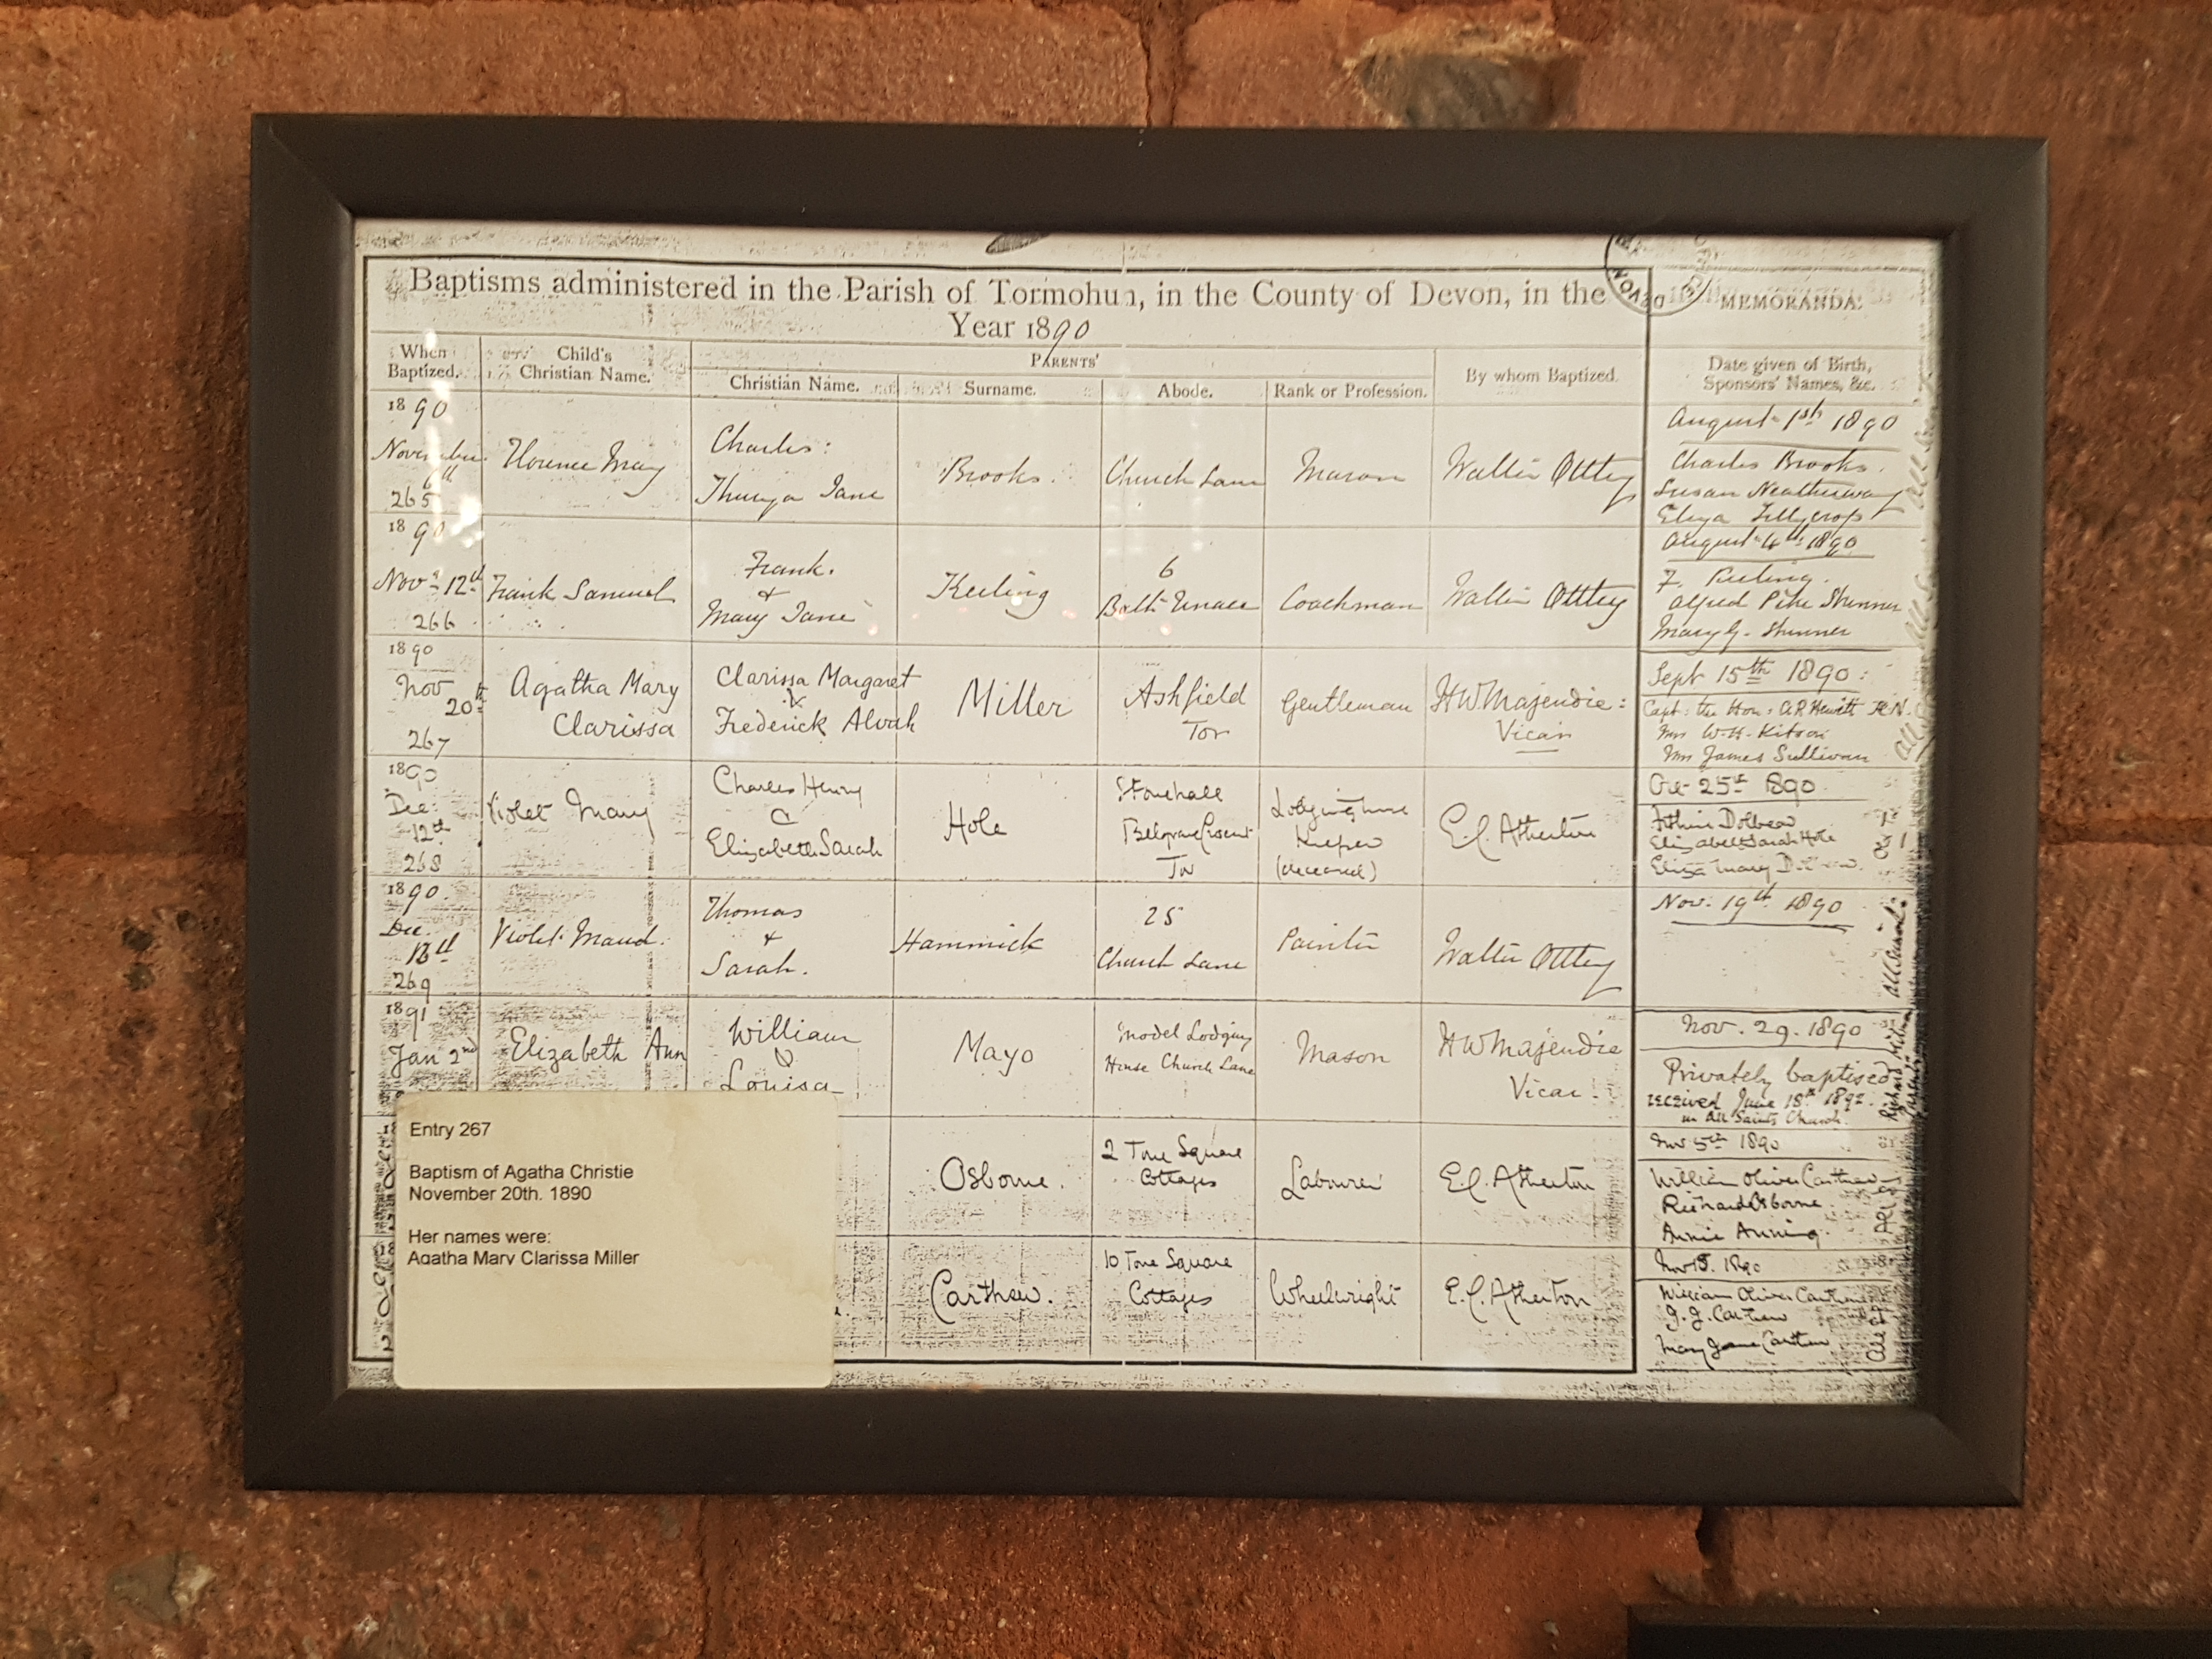 Baptisms administered in the Parish of Tormohun, in the County of Devon, in the
Year 1890
MEMORANDA.
When Baptized.
Child's Christian Name.
PARENTS'
Christian Name.
Surname.
Abode.
Rank or Profession.
By whom Baptized.
Date given of Birth, Sponsors' Names, &c.
1890
November 6th
265
Florence May
Charles:
Jane
Brooks.
Church Lane
Mason
Walter Ottley
August 1st 1890
Charles Brooks.
Susan
Eliza
1890
Novr 12th
266
Frank Samuel
Frank.
&
Mary Jane
Keeling
6
Coachman
Walter Ottley
August 4th 1890
F. Keeling.
Alfred Pike
Mary G.
1890
Nov 20th
267
Agatha Mary
Clarissa
Clarissa Margaret
&
Frederick Alvah
Miller
Ashfield
Tor
Gentleman
HWMajendie:
Vicar
Sept 15th 1890:
Capt: the Hon: A.R. Hewitt R.N.
Mrs W.H. Kitson
Mrs James Sullivan
1890
Dec: 12th
268
Violet Mary
Charles Henry
&
Elizabeth Sarah
Hole
Stonehall
Belgrave Crescent
Tor
Lodginghouse
Keeper
(deceased)
E.C. Atherton
Oct 25th 1890
Elizabeth Sarah Hole
Eliza Mary
1890.
Dec.
269
Violet Maud.
Thomas
&
Sarah.
Hammick
25
Church Lane
Painter
Walter Ottley
Nov. 19th 1890
All Saints
1891
Jan 2nd
Elizabeth Ann
William
&
Louisa
Mayo
Model Lodging
House Church Lane
Mason
HWMajendie
Vicar.
Nov. 29. 1890
Privately baptised
received June 18th 1892.
in All Saints Church.
Osborne.
2 Tore Square
Cottages
Labourer
E.C. Atherton
Nov 5th 1890
William Oliver Carthew
Richard Osborne
Annie Anning.
Carthew.
10 Tore Square
Cottages
Wheelwright
E.C. Atherton
1890
William Oliver Carthew
J. J. Carthew
Mary Jane Carthew
Entry 267
Baptism of Agatha Christie
November 20th. 1890
Her names were:
Agatha Mary Clarissa Miller